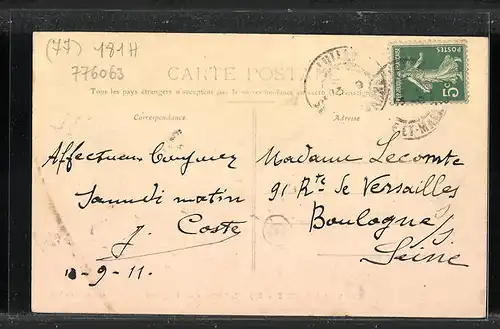 (77) 181H
776063
CARTE POSTALE
Tous les pays étrangers n'acceptent pas la correspondance au recto
Correspondance
Adresse
POSTES
5c
ET-MAR
Affectueux
Samedi matin
J. Coste
9-11.
Madame Lecomte
91 Rte de Versailles
Boulogne s/s
Seine